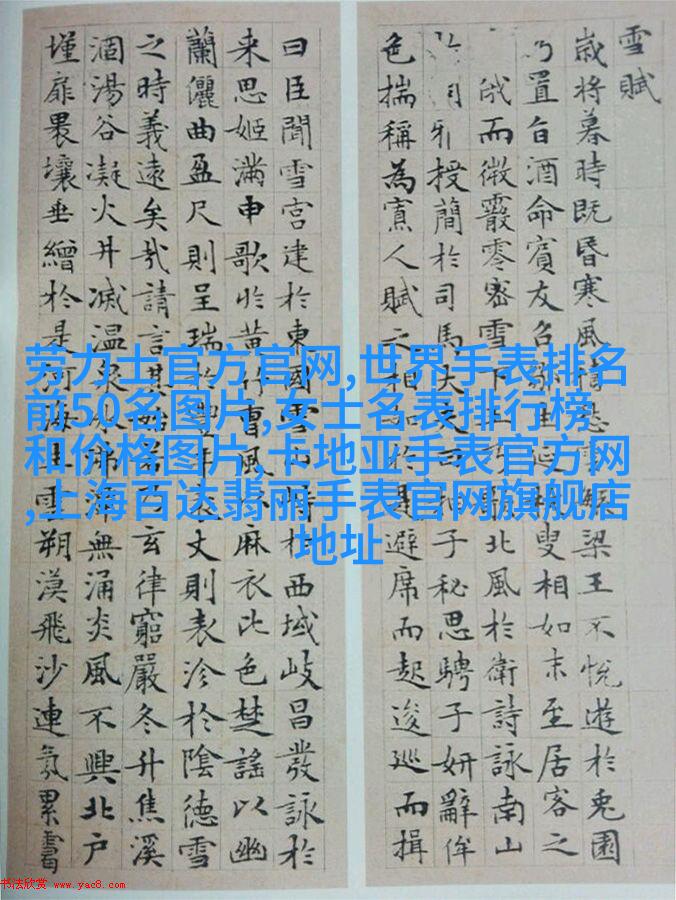 雪賦
歳将暮時既昏寒風積 梁王不悅遊於兎園
乃置旨酒命賔友召鄒生延 叟相如末至居客之
俄而微霰零密雪下王 歌北風於衛詩詠南山
雅授簡於司馬大夫曰抽子秘思騁子妍辭侔
色揣稱為寡人賦之相如於是避席而起逡巡而揖
曰臣聞雪宮建於東國雪山峙於西域岐昌發詠於
来思姬滿申歌於黄竹曹風以麻衣比色楚謠以幽
蘭儷曲盈尺則呈瑞於豐年袤丈則表沴於陰德雪
之時義遠矣哉請言其始若乃玄律窮嚴冬升焦溪
涸湯谷凝火井滅温泉氷沸潭無涌炎風不興北户
墐扉 壤垂繒於是河海生雲朔漠飛沙連氛累靄
劳力士官方官网,世界手表排名
前50名图片,女士名表排行榜
和价格图片,卡地亚手表官方网
,上海百达翡丽手表官网旗舰店
地址
书法欣赏 www.yac8.com